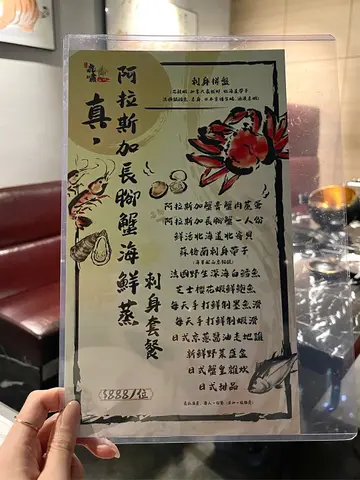 真，
阿拉斯加長腳蟹海鮮蒸
刺身套餐
刺身拼盤
阿拉斯加蟹膏蟹肉蒸蛋
阿拉斯加長腳蟹一人份
鮮活北海道北寄貝
蘇格蘭刺身帶子
法國野生深海白鱈魚
芝士櫻花蝦鮮鮑魚
每天手打鮮制墨魚滑
每天手打鮮制蝦滑
日式京蔥醬油走地雞
新鮮野菜蒸盆
日式蟹皇雜炊
日式甜品
$888/位